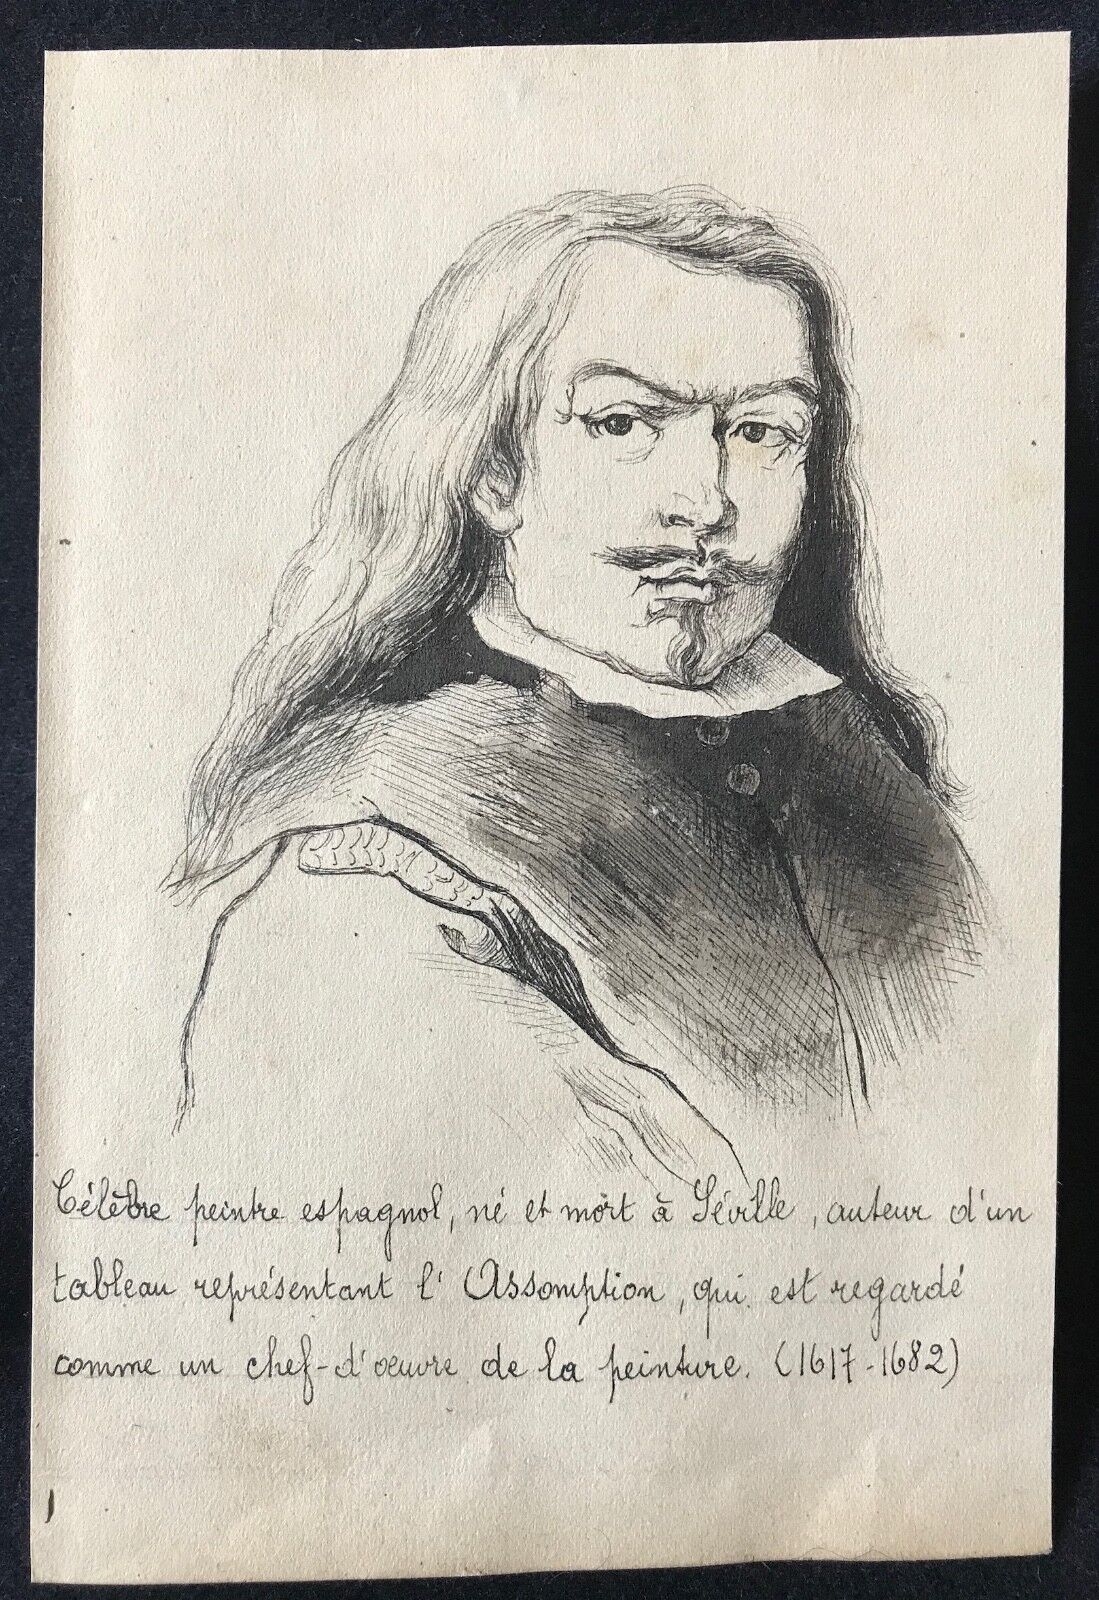 Célèbre peintre espagnol, né et mort à Séville, auteur d'un
tableau représentant l'Assomption, qui est regardé
comme un chef-d'œuvre de la peinture. (1617-1682)